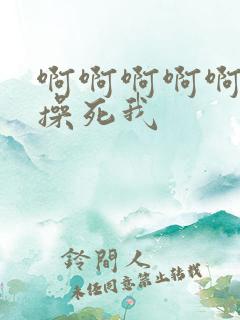 啊啊啊啊啊
操死我
鈴間人
未经同意禁止转载